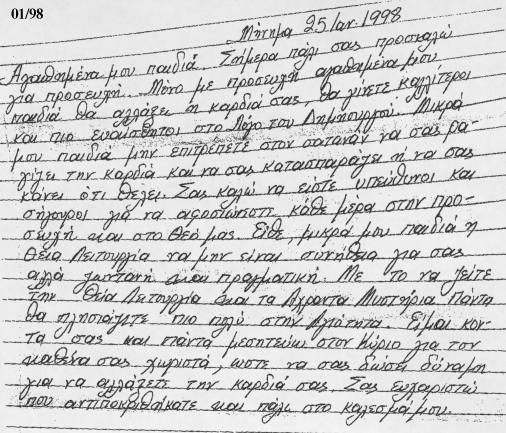 01/98
Μήνημα 25 Ιαν. 1998
Αγαπημένα μου παιδιά. Σήμερα πάλι σας προσκαλώ
για προσευχή. Μόνο με προσευχή αγαπημένα μου
παιδιά θα αλλάξει η καρδιά σας, θα γίνετε καλλίτεροι
και πιο ευαίσθητοι στο Λόγο του Δημιουργού. Μικρά
μου παιδιά μην επιτρέπετε στον σατανάν να σας ρα-
γίζει την καρδιά και να σας κατασπαράζει ή να σας
κάνει ότι θέλει. Σας καλώ να είστε υπεύθυνοι και
σήγουροι για να αφοσιώνεστε κάθε μέρα στην προ-
σευχή και στο Θεό μας. Είθε, μικρά μου παιδιά η
Θεία Λειτουργία να μην είναι συνήθεια για σας
αλλά ζωντανή και πραγματική. Με το να ζείτε
την Θεία Λειτουργία και τα Άχραντα Μυστήρια Πάντα
θα πλησιάζετε πιο πολύ στην Αγιότητα. Είμαι κον-
τά σας και πάντα μεσητεύω στον Κύριο για τον
καθένα σας χωριστά, ώστε να σας δώσει δύναμη
για να αλλάξετε την καρδιά σας. Σας ευχαριστώ
που αντιποκριθήκατε και πάλι στο κάλεσμά μου.